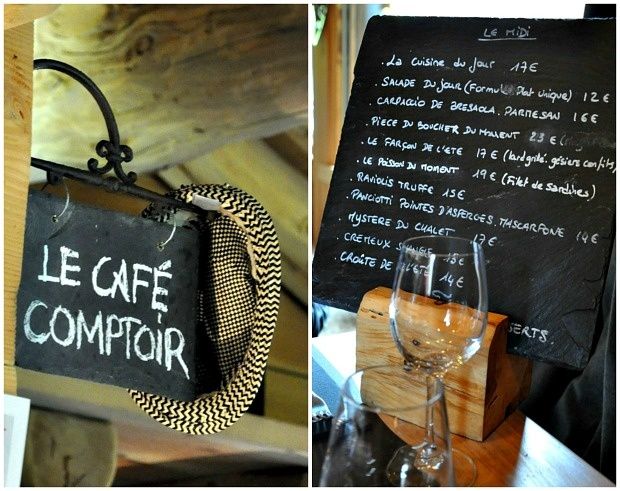 LE CAFÉ
COMPTOIR
LE MIDI
. La cuisine du jour 17€
. SALADE DU JOUR (Formule Plat unique) 12€
. CARPACCIO DE BRESAOLA. PARMESAN 16€
. PIECE DU BOUCHER DU MOMENT 23€
. LE FARÇON DE L'ÉTÉ 17€ (lard grillé, gésiers confits,
. LE POISSON DU MOMENT 19€ (Filet de Sardines)
. RAVIOLIS TRUFFE 15€
. PANCIOTTI POINTES D'ASPERGES, MASCARPONE 14€
. MYSTERE DU CHALET 17€
. CREMEUX 15€
. CROÛTE DE L'ÉTÉ 14€
SERTS.